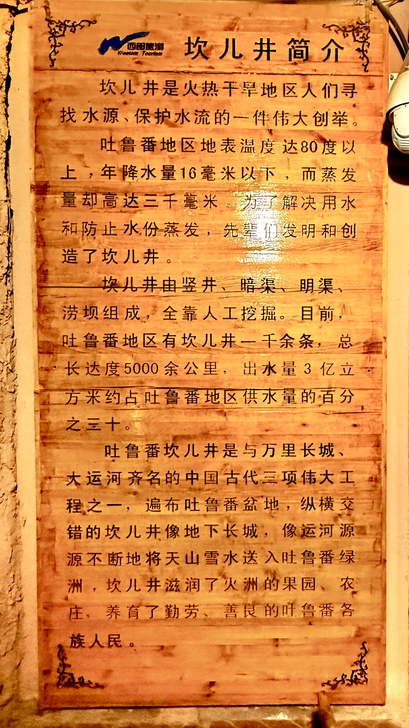 西部旅游
Western Tourism
坎儿井简介
坎儿井是火热干旱地区人们寻
找水源、保护水流的一件伟大创举。
吐鲁番地区地表温度达80度以
上，年降水量16毫米以下，而蒸发
量却高达三千毫米。为了解决用水
和防止水份蒸发，先辈们发明和创
造了坎儿井。
坎儿井由竖井、暗渠、明渠、
涝坝组成，全靠人工挖掘。目前，
吐鲁番地区有坎儿井一千余条，总
长达度5000余公里，出水量3亿立
方米约占吐鲁番地区供水量的百分
之三十。
吐鲁番坎儿井是与万里长城、
大运河齐名的中国古代三项伟大工
程之一，遍布吐鲁番盆地，纵横交
错的坎儿井像地下长城，像运河源
源不断地将天山雪水送入吐鲁番绿
洲，坎儿井滋润了火洲的果园、农
庄，养育了勤劳、善良的吐鲁番各
族人民。